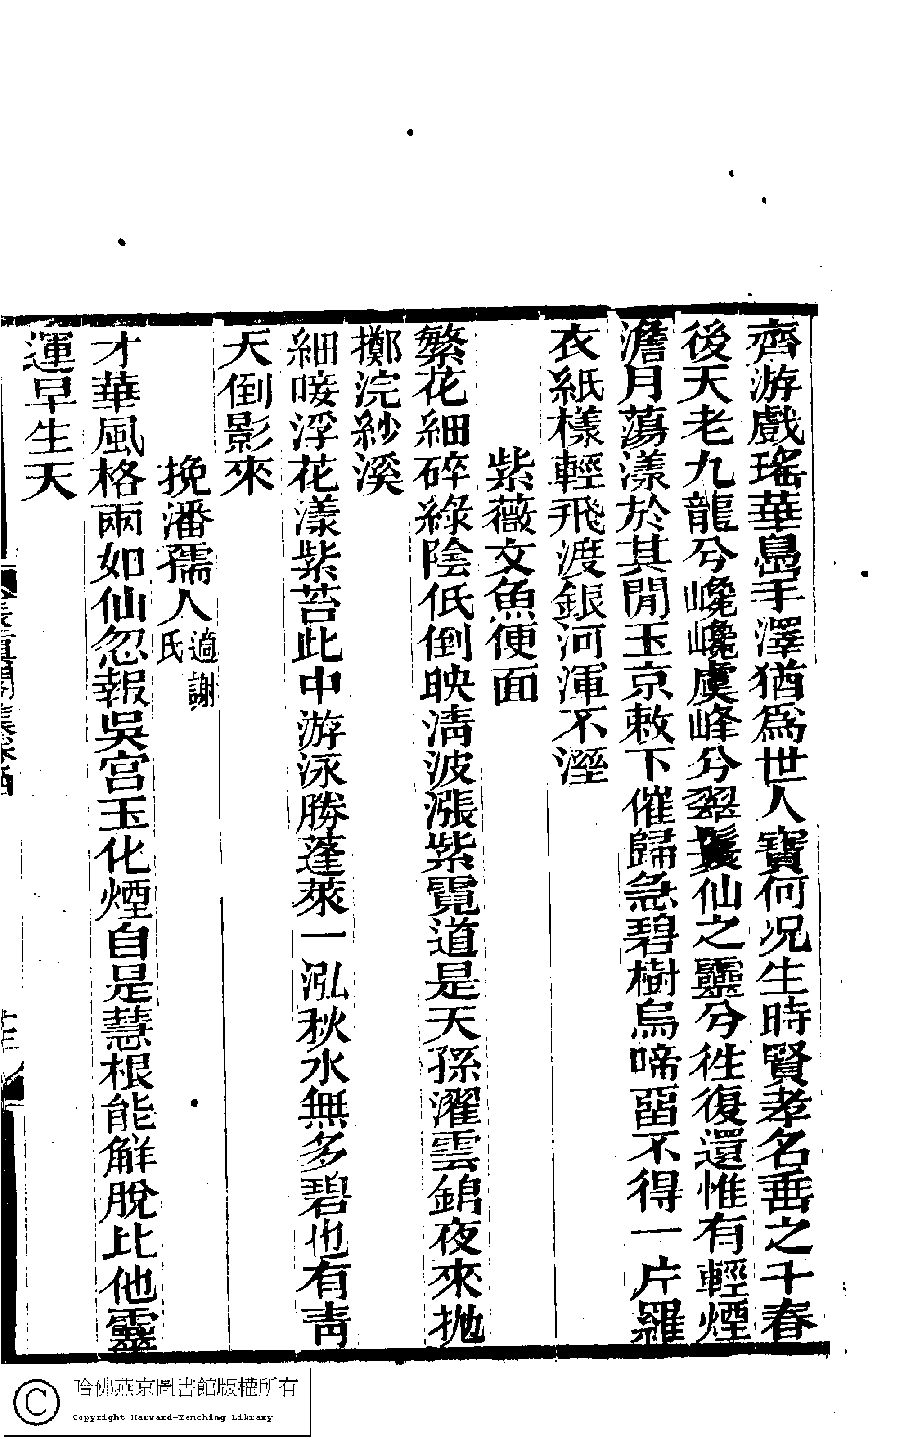 齊游戲瑤華島手澤猶爲世人寶何况生時賢孝名垂之千春
後天老九龍兮巉巉虞峰兮翠鬟仙之靈兮徃復還惟有輕煙
澹月蕩漾於其閒玉京敕下催歸急碧樹烏啼畱不得一片羅
衣紙樣輕飛渡銀河渾不溼
紫薇文魚便面
繁花細碎綠陰低倒映淸波漲紫霓道是天孫濯雲錦夜來抛
擲浣紗溪
細唼浮花漾紫苔此中游泳勝蓬萊一泓秋水無多碧也有靑
天倒影來
挽潘孺人適謝氏
才華風格兩如仙忽報吳宫玉化煙自是慧根能解脫比他靈
運早生天
哈佛燕京圖書館版權所有
Copyright Harvard-Yenching Library